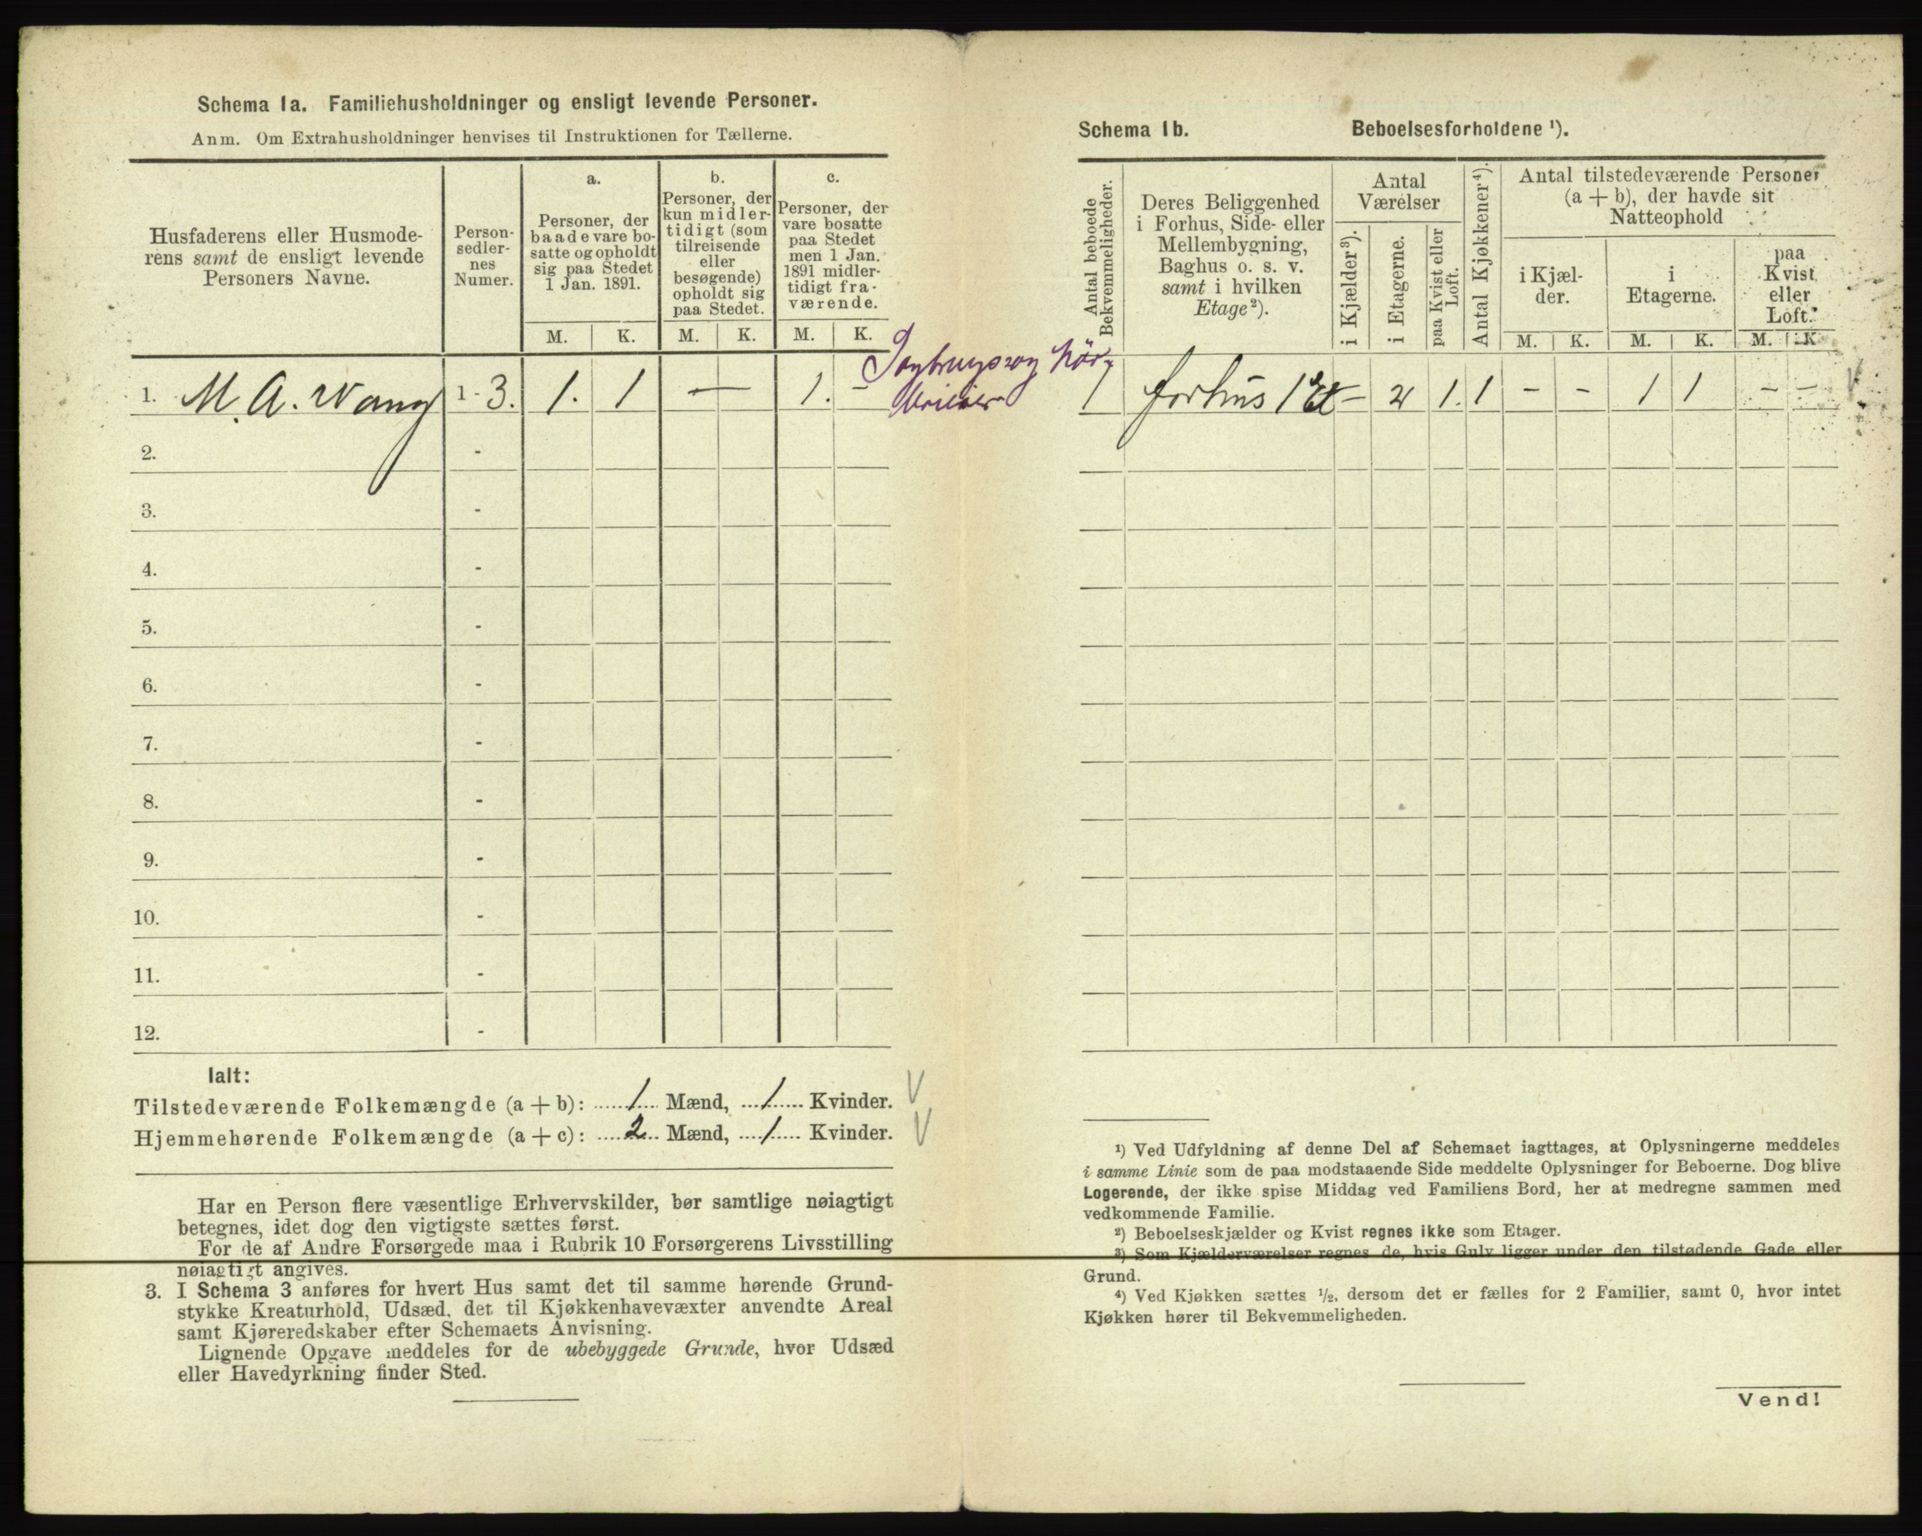 Schema 1a. Familiehusholdninger og ensligt levende Personer.
Anm. Om Extrahusholdninger henvises til Instruktionen for Tællerne.
Husfaderens eller Husmode-
rens samt de ensligt levende
Personers Navne.
Person-
sedler-
nes
Numer.
a.
Personer, der
baade vare bo-
satte og opholdt
sig paa Stedet
1 Jan. 1891.
b.
Personer, der
kun midler-
tidigt (som
tilreisende
eller
besøgende)
opholdt sig
paa Stedet.
c.
Personer, der
vare bosatte
paa Stedet
men 1 Jan.
1891 midler-
tidigt fra-
værende.
M. K. M. K. M. K.
1. M. A. Wang 1-3. 1. 1 — 1. -
2. -
3. -
4. -
5. -
6. -
7. -
8. -
9. -
10. -
11. -
12. -
Ialt:
Tilstedeværende Folkemængde (a + b): 1 Mænd, 1 Kvinder. V
Hjemmehørende Folkemængde (a + c): 2 Mænd, 1 Kvinder. V
Har en Person flere væsentlige Erhvervskilder, bør samtlige nøiagtigt
betegnes, idet dog den vigtigste sættes først.
For de af Andre Forsørgede maa i Rubrik 10 Forsørgerens Livsstilling
nøiagtigt angives.
3. I Schema 3 anføres for hvert Hus samt det til samme hørende Grund-
stykke Kreaturhold, Udsæd, det til Kjøkkenhavevæxter anvendte Areal
samt Kjøreredskaber efter Schemaets Anvisning.
Lignende Opgave meddeles for de ubebyggede Grunde, hvor Udsæd
eller Havedyrkning finder Sted.
Schema 1b. Beboelsesforholdene ¹).
Antal beboede
Bekvemmeligheder.
Deres Beliggenhed
i Forhus, Side- eller
Mellembygning,
Baghus o. s. v.
samt i hvilken
Etage²).
Antal
Værelser
i Kjælder³).
i Etagerne.
paa Kvist eller
Loft.
Antal Kjøkkener⁴).
Antal tilstedeværende Personer
(a + b), der havde sit
Natteophold
i Kjæl-
der.
i
Etagerne.
paa
Kvist
eller
Loft.
M. K. M. K. M. K.
1 forhus 1 Et - 2 1. 1 - - 1 1 - - V
¹) Ved Udfyldning af denne Del af Schemaet iagttages, at Oplysningerne meddeles
i samme Linie som de paa modstaaende Side meddelte Oplysninger for Beboerne. Dog blive
Logerende, der ikke spise Middag ved Familiens Bord, her at medregne sammen med
vedkommende Familie.
²) Beboelseskjælder og Kvist regnes ikke som Etager.
³) Som Kjælderværelser regnes de, hvis Gulv ligger under den tilstødende Gade eller
Grund.
⁴) Ved Kjøkken sættes ½, dersom det er fælles for 2 Familier, samt 0, hvor intet
Kjøkken hører til Bekvemmeligheden.
Vend!